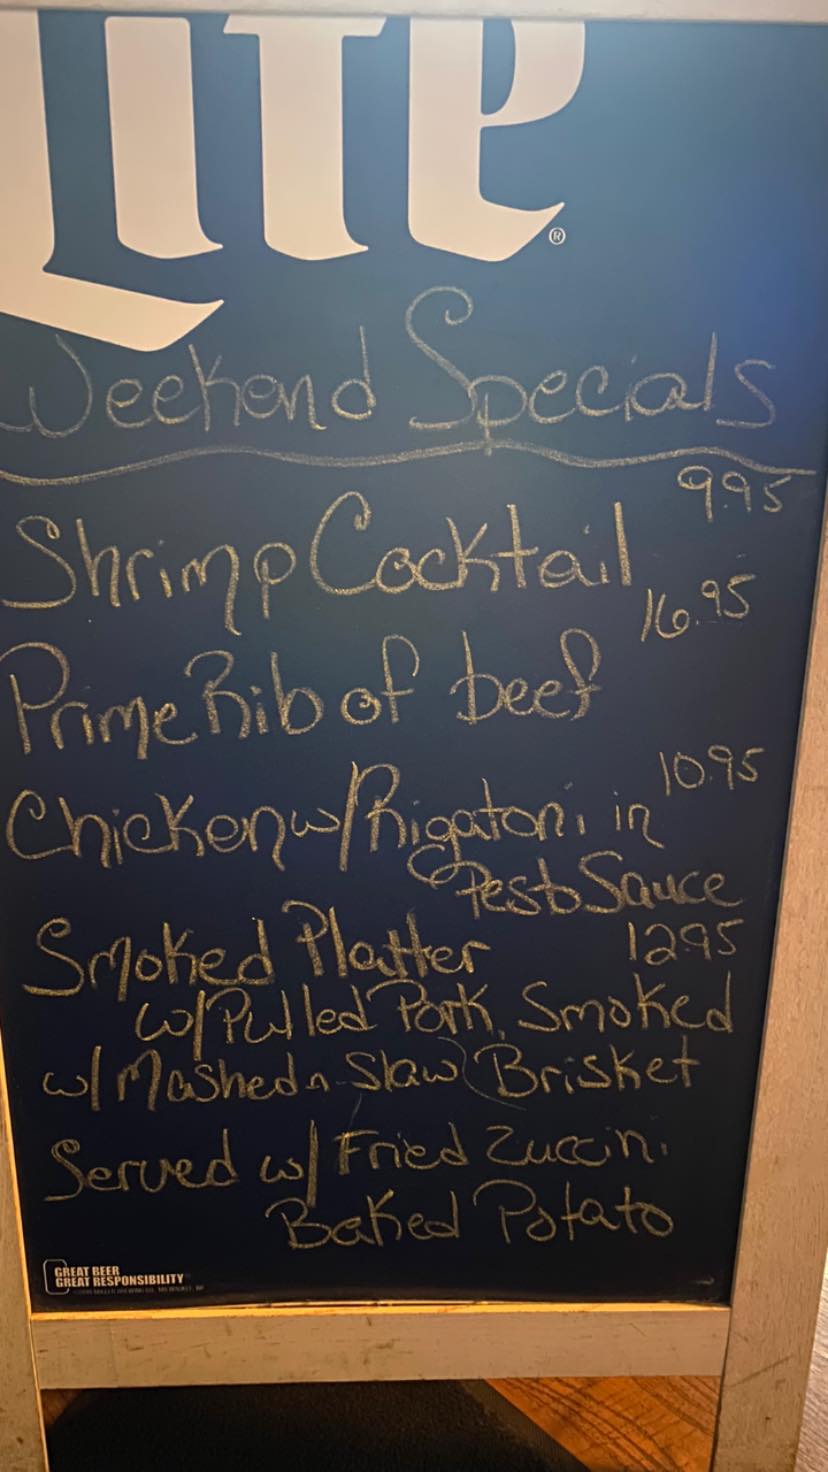 Lite®
Weekend Specials
9.95
Shrimp Cocktail
16.95
Prime Rib of beef
10.95
Chicken w/Rigatoni in
Pesto Sauce
Smoked Platter 12.95
w/Pulled Pork, Smoked
w/Mashed n Slaw Brisket
Served w/ Fried Zuccini
Baked Potato
GREAT BEER
GREAT RESPONSIBILITY